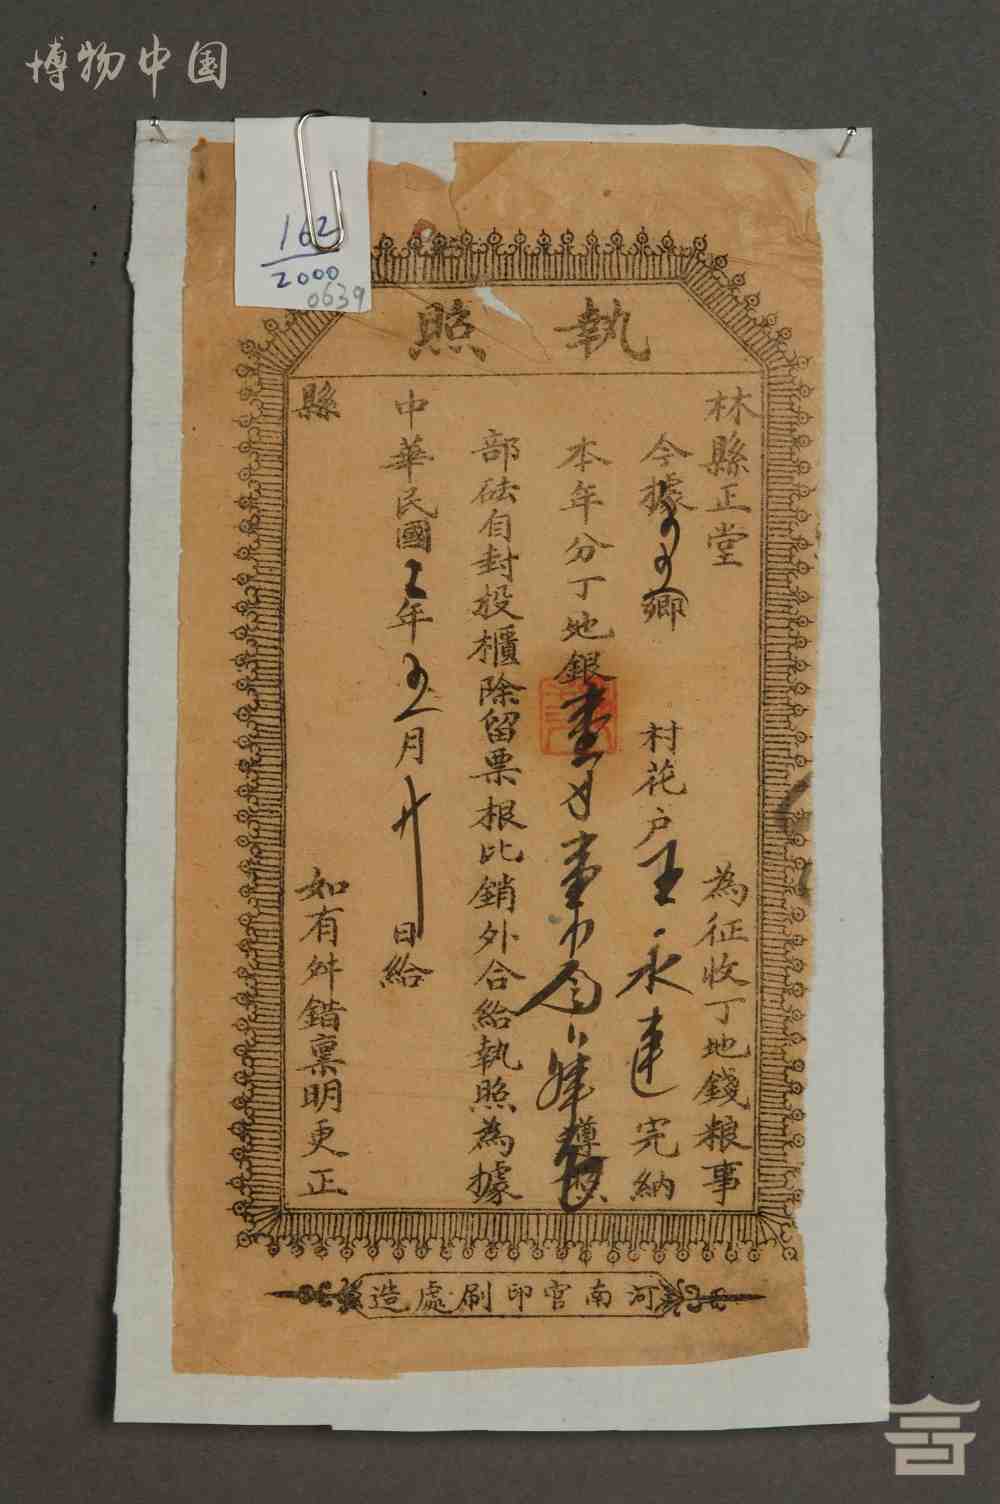 博物中国
162
2000
0639
執照
林縣正堂 為征收丁地錢粮事
今據 鄉 村花户王永連完納
本年分丁地銀壹 壹 肆 遵照
部砝自封投櫃除留票根比銷外合給執照為據
中華民國 年五月廿日給
縣 如有舛錯稟明更正
河南官印刷處造